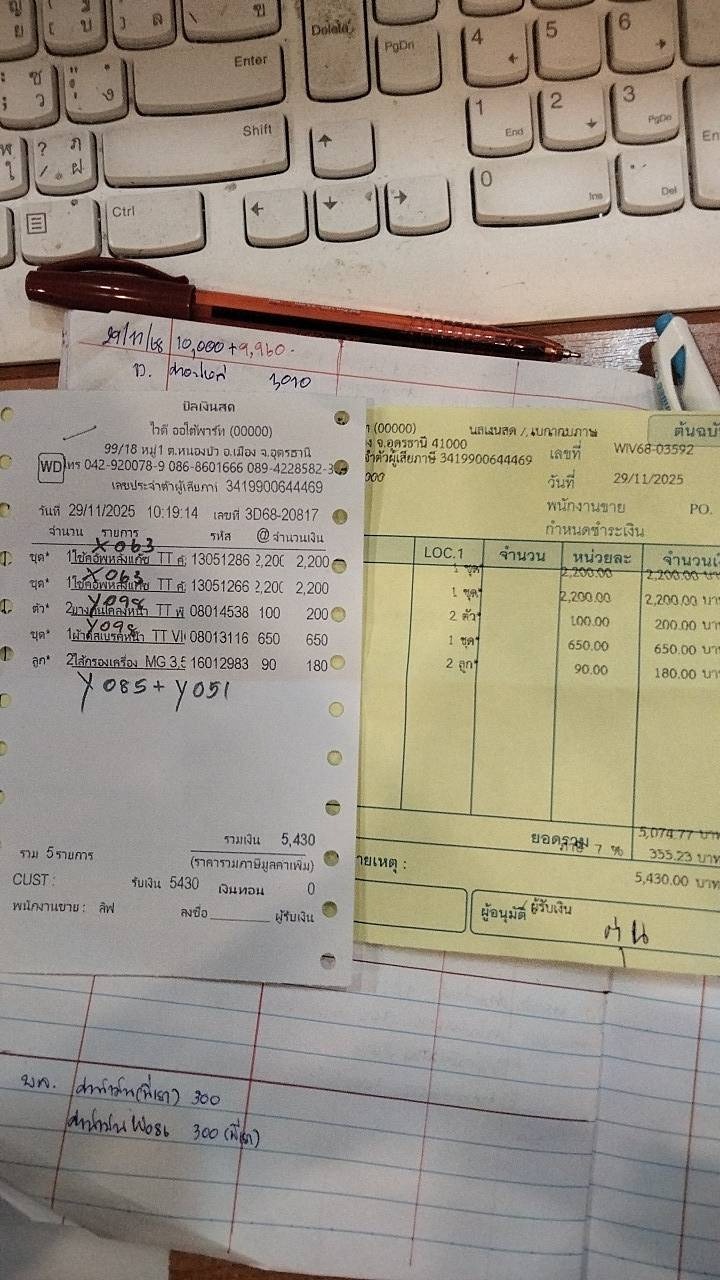 Delete
PgDn
4
5
6
Enter
1
End
2
3
PgDn
Shift
0
Ins
Del
Ctrl
29/11/68 10,000 + 9,960.
3,010
บิลเงินสด
ไวดี ออโต้พาร์ท (00000)
99/18 หมู่1 ต.หนองบัว อ.เมือง จ.อุดรธานี
WD โทร 042-920078-9 086-8601666 089-4228582-3
เลขประจำตัวผู้เสียภาษี 3419900644469
วันที่ 29/11/2025 10:19:14 เลขที่ 3D68-20817
จำนวน รายการ รหัส @ จำนวนเงิน
X063
ชุด* 1 โช้คอัพหลังแก๊ซ TT 13051286 2,200 2,200
X063
ชุด* 1 โช้คอัพหลังแก๊ซ TT 13051266 2,200 2,200
Y098
ตัว* 2 TT 08014538 100 200
Y098
ชุด* 1 ผ้าดิสเบรคหน้า TT VI 08013116 650 650
ลูก* 2 ไส้กรองเครื่อง MG 3,5 16012983 90 180
Y085 + Y051
รวมเงิน 5,430
รวม 5 รายการ
(ราคารวมภาษีมูลค่าเพิ่ม)
CUST : รับเงิน 5430 เงินทอน 0
พนักงานขาย : ลิฟ ลงชื่อ ผู้รับเงิน
(00000)
จ.อุดรธานี 41000
ตัวผู้เสียภาษี 3419900644469
000
ต้นฉบั
เลขที่ WIV68-03592
วันที่ 29/11/2025
พนักงานขาย PO.
กำหนดชำระเงิน
LOC.1 จำนวน หน่วยละ จำนวนเ
1 ชุด* 2,200.00 2,200.00 บา
1 ชุด* 2,200.00 2,200.00 บา
2 ตัว* 100.00 200.00 บา
1 ชุด* 650.00 650.00 บา
2 ลูก* 90.00 180.00 บา
ยอดรวม 5,074.77 บา
ภาษี 7 % 355.23 บา
ายเหตุ : 5,430.00 บา
ผู้อนุมัติ ผู้รับเงิน
300
300